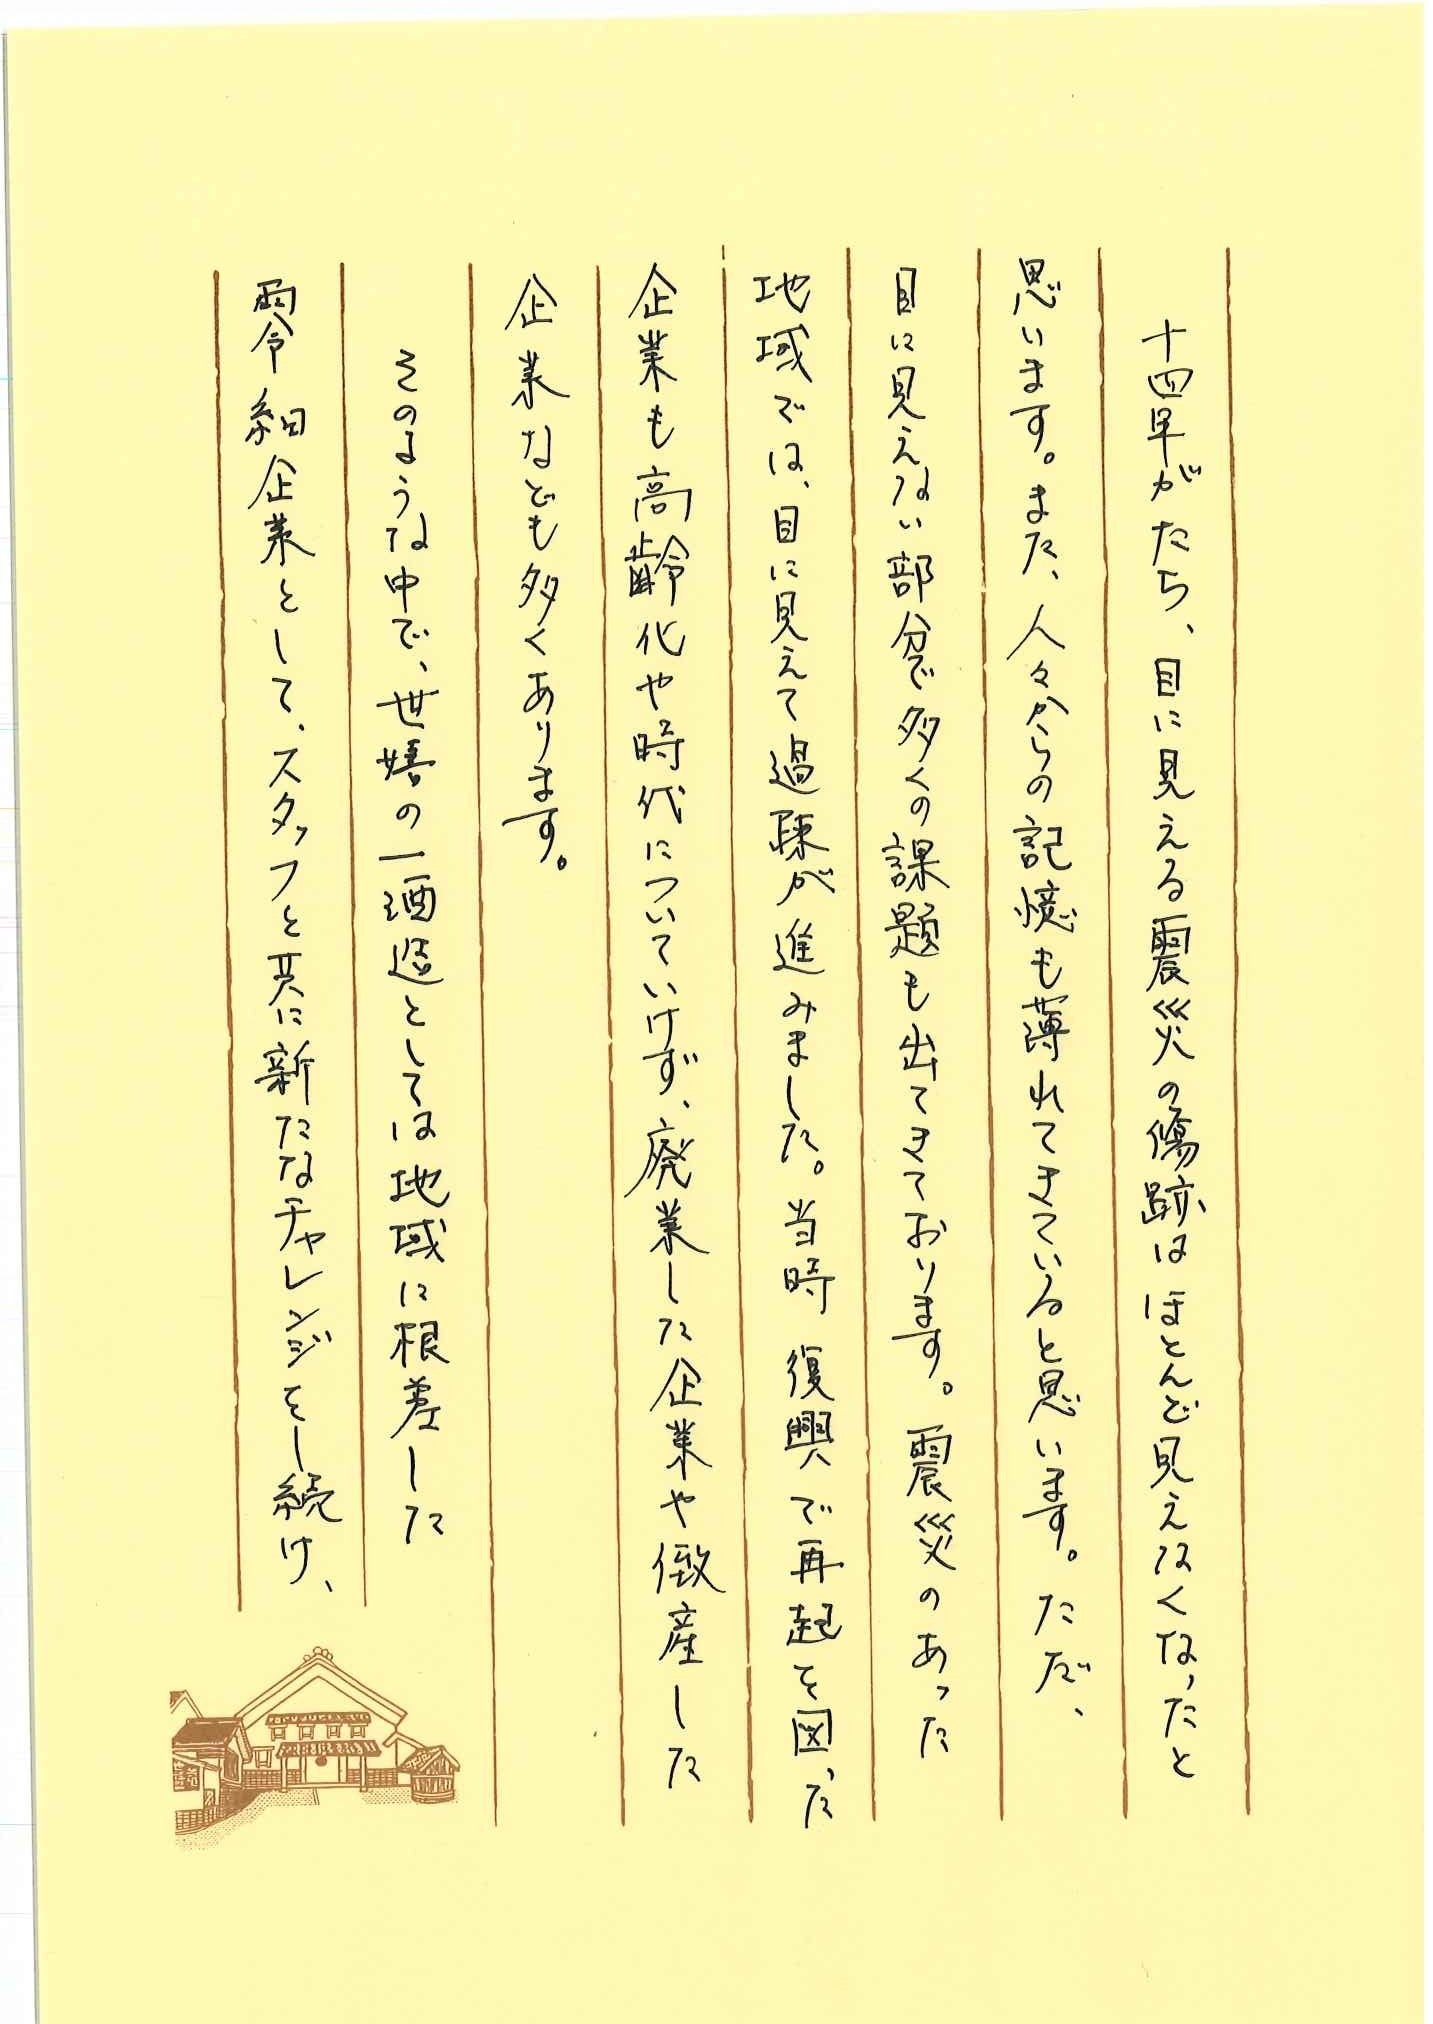 十四年がたち、目に見える震災の傷跡はほとんど見えなくなったと
思います。また、人々からの記憶も薄れてきていると思います。ただ、
目に見えない部分で多くの課題も出てきております。震災のあった
地域では、目に見えて過疎が進みました。当時復興で再起を図った
企業も高齢化や時代についていけず、廃業した企業や倒産した
企業なども多くあります。
そのような中で、世嬉の一酒造としては地域に根差した
零細企業として、スタッフと共に新たなチャレンジをし続け、